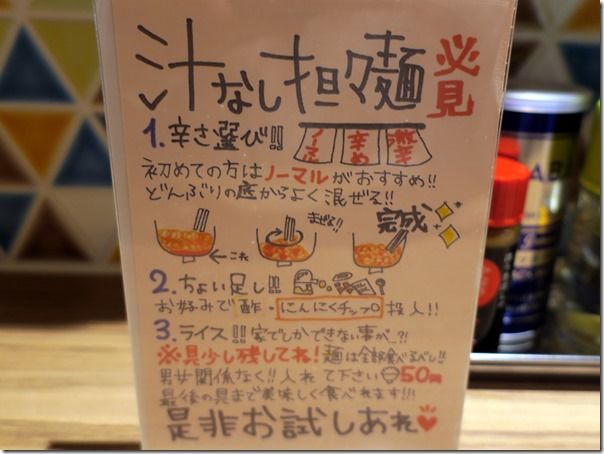 汁なし担々麺 必見
1. 辛さ選び!! ノーマル 辛め 激辛
初めての方はノーマルがおすすめ!!
どんぶりの底からよく混ぜる!!
これ まぜる!! 完成
2. ちょい足し!!
お好みで酢・にんにくチップ投入!!
3. ライス!! 家でしかできない事が…?!
※具少し残してね! 麺は全部食べるべし!!
男女関係なく!! 入れて下さい 50円
最後の具まで美味しく食べれます!!!
是非お試しあれ